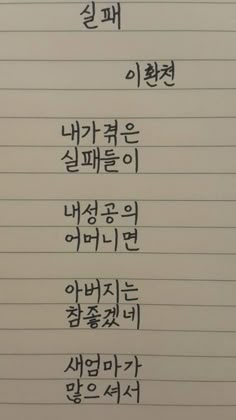 실패
이환천
내가 겪은
실패들이
내성공의
어머니면
아버지는
참좋겠네
새엄마가
많으셔서